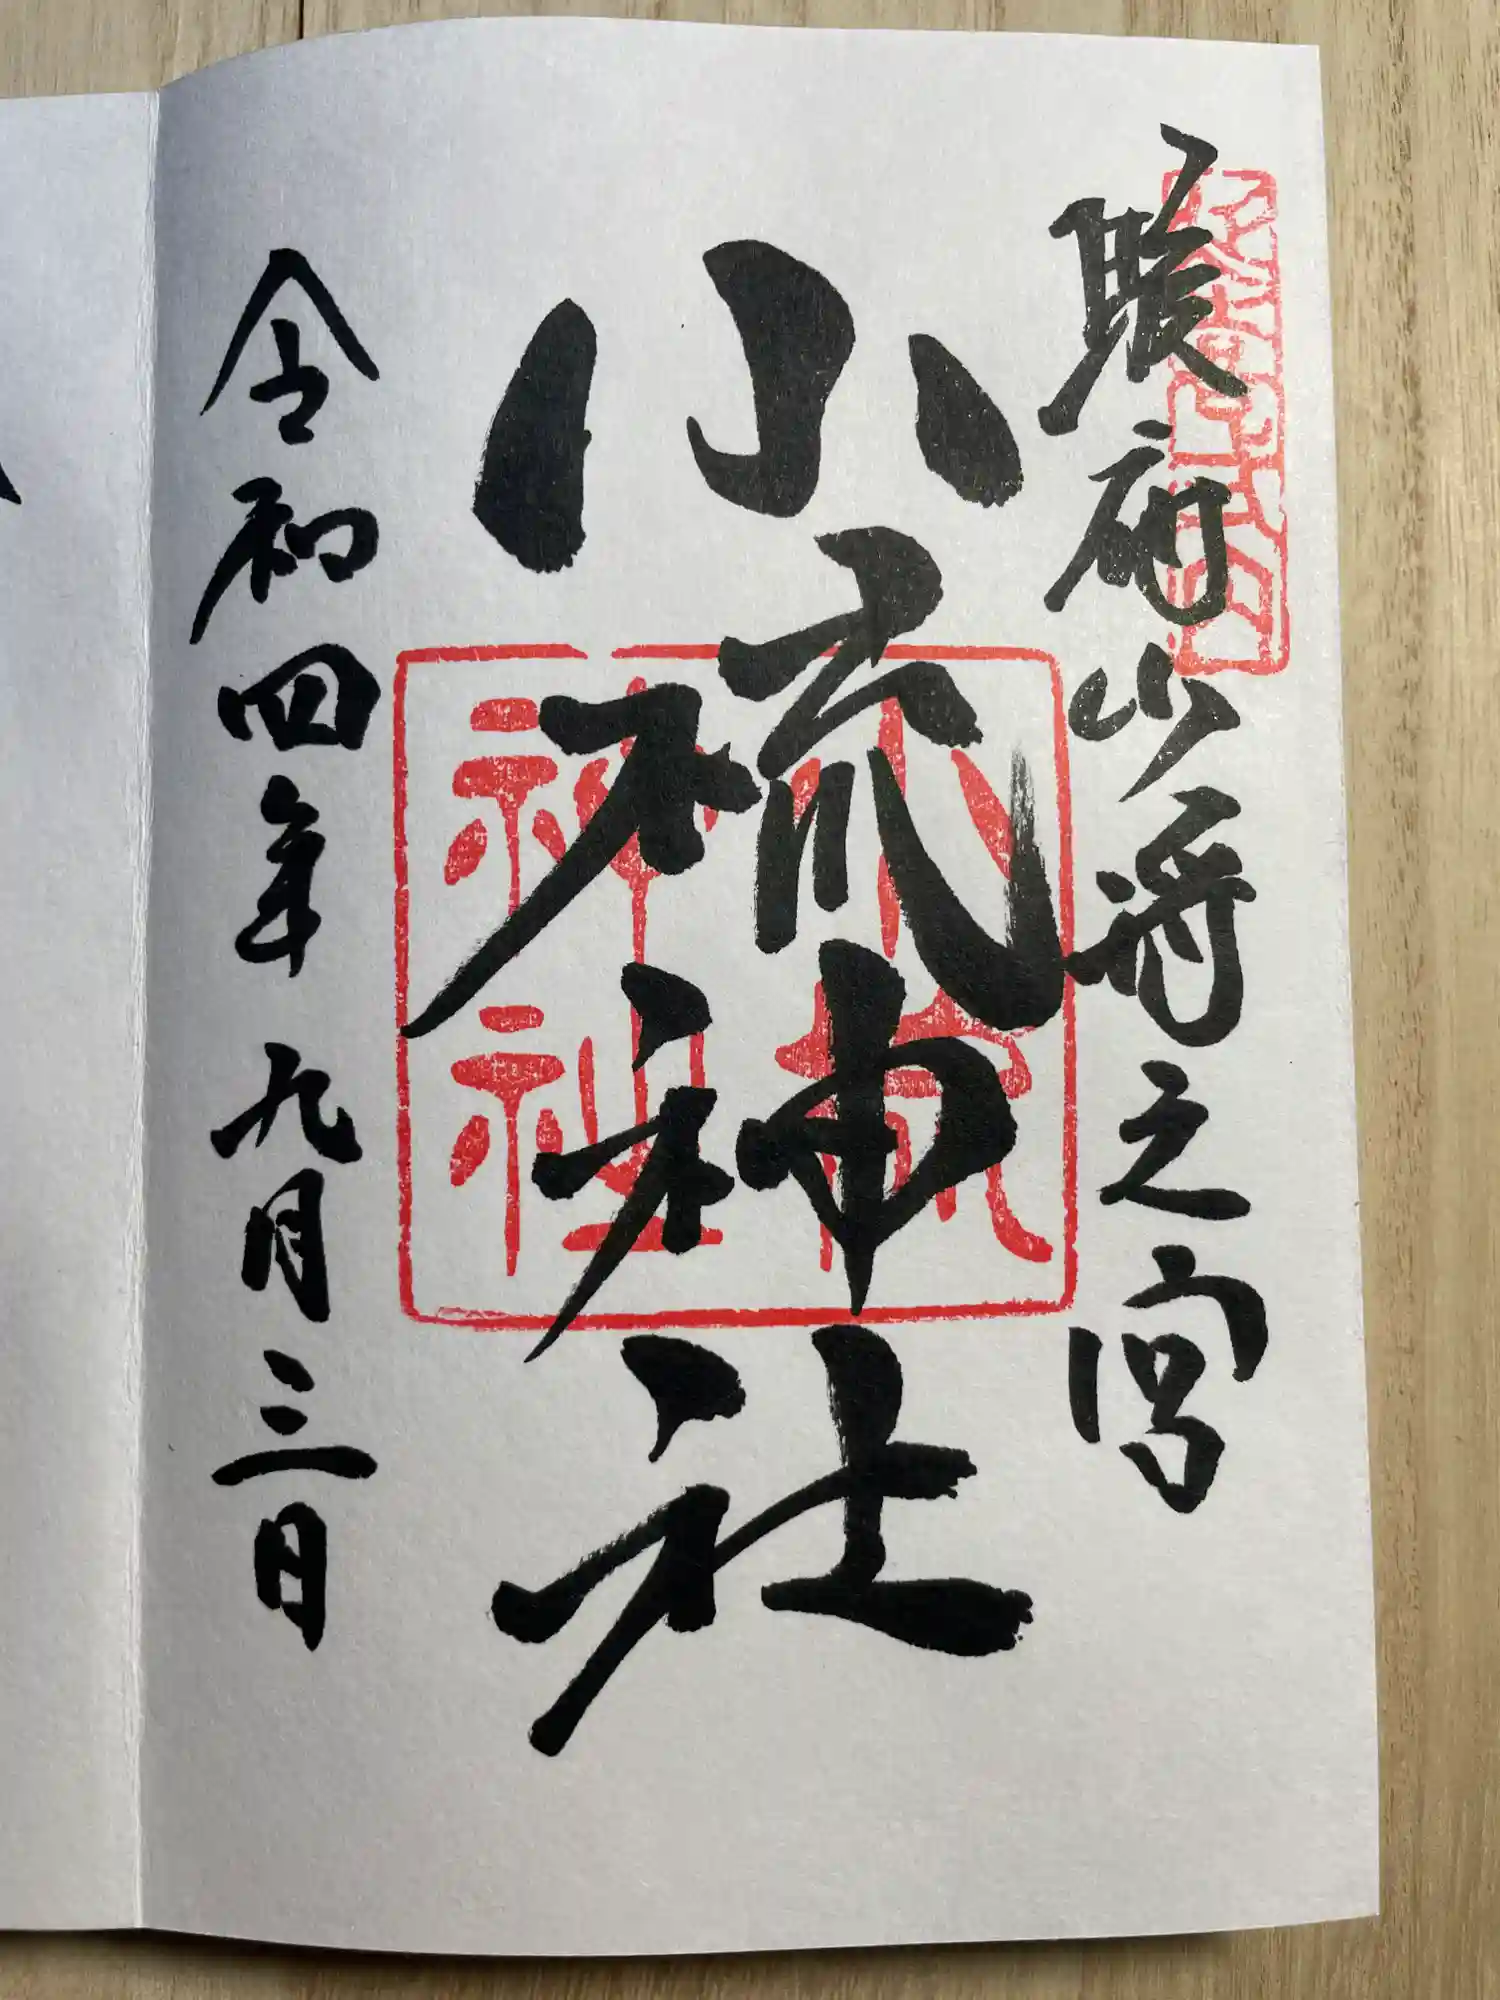 駿府少将之宮
小梳神社
小梳神社
令和四年九月三日